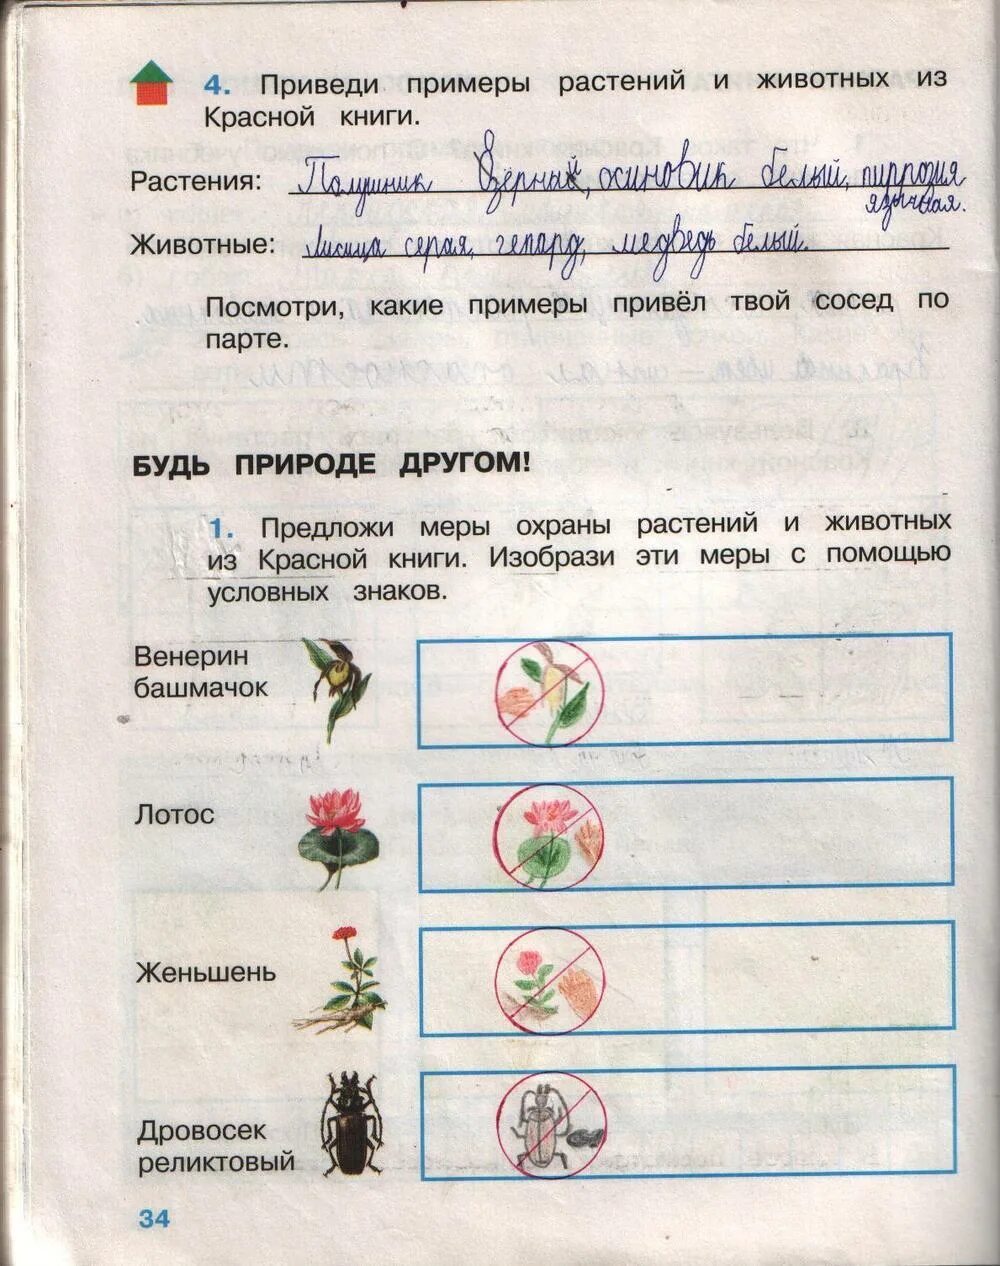 4. Приведи примеры растений и животных из
Красной книги.
Растения: Полушник Озёрный, осиновик белый, пиррозия
язычная.
Животные: Лисица серая, гепард, медведь белый.
Посмотри, какие примеры привёл твой сосед по
парте.
БУДЬ ПРИРОДЕ ДРУГОМ!
1. Предложи меры охраны растений и животных
из Красной книги. Изобрази эти меры с помощью
условных знаков.
Венерин
башмачок
Лотос
Женьшень
Дровосек
реликтовый
34